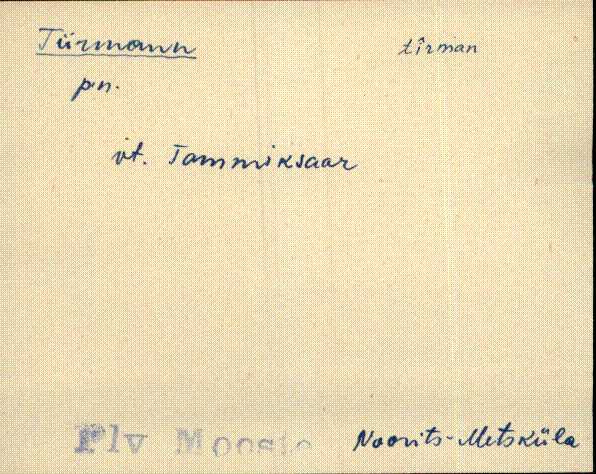 Tiirmann tîrman
p.n.
vt. Tammiksaar
Plv Mooste Noorits-Metsküla